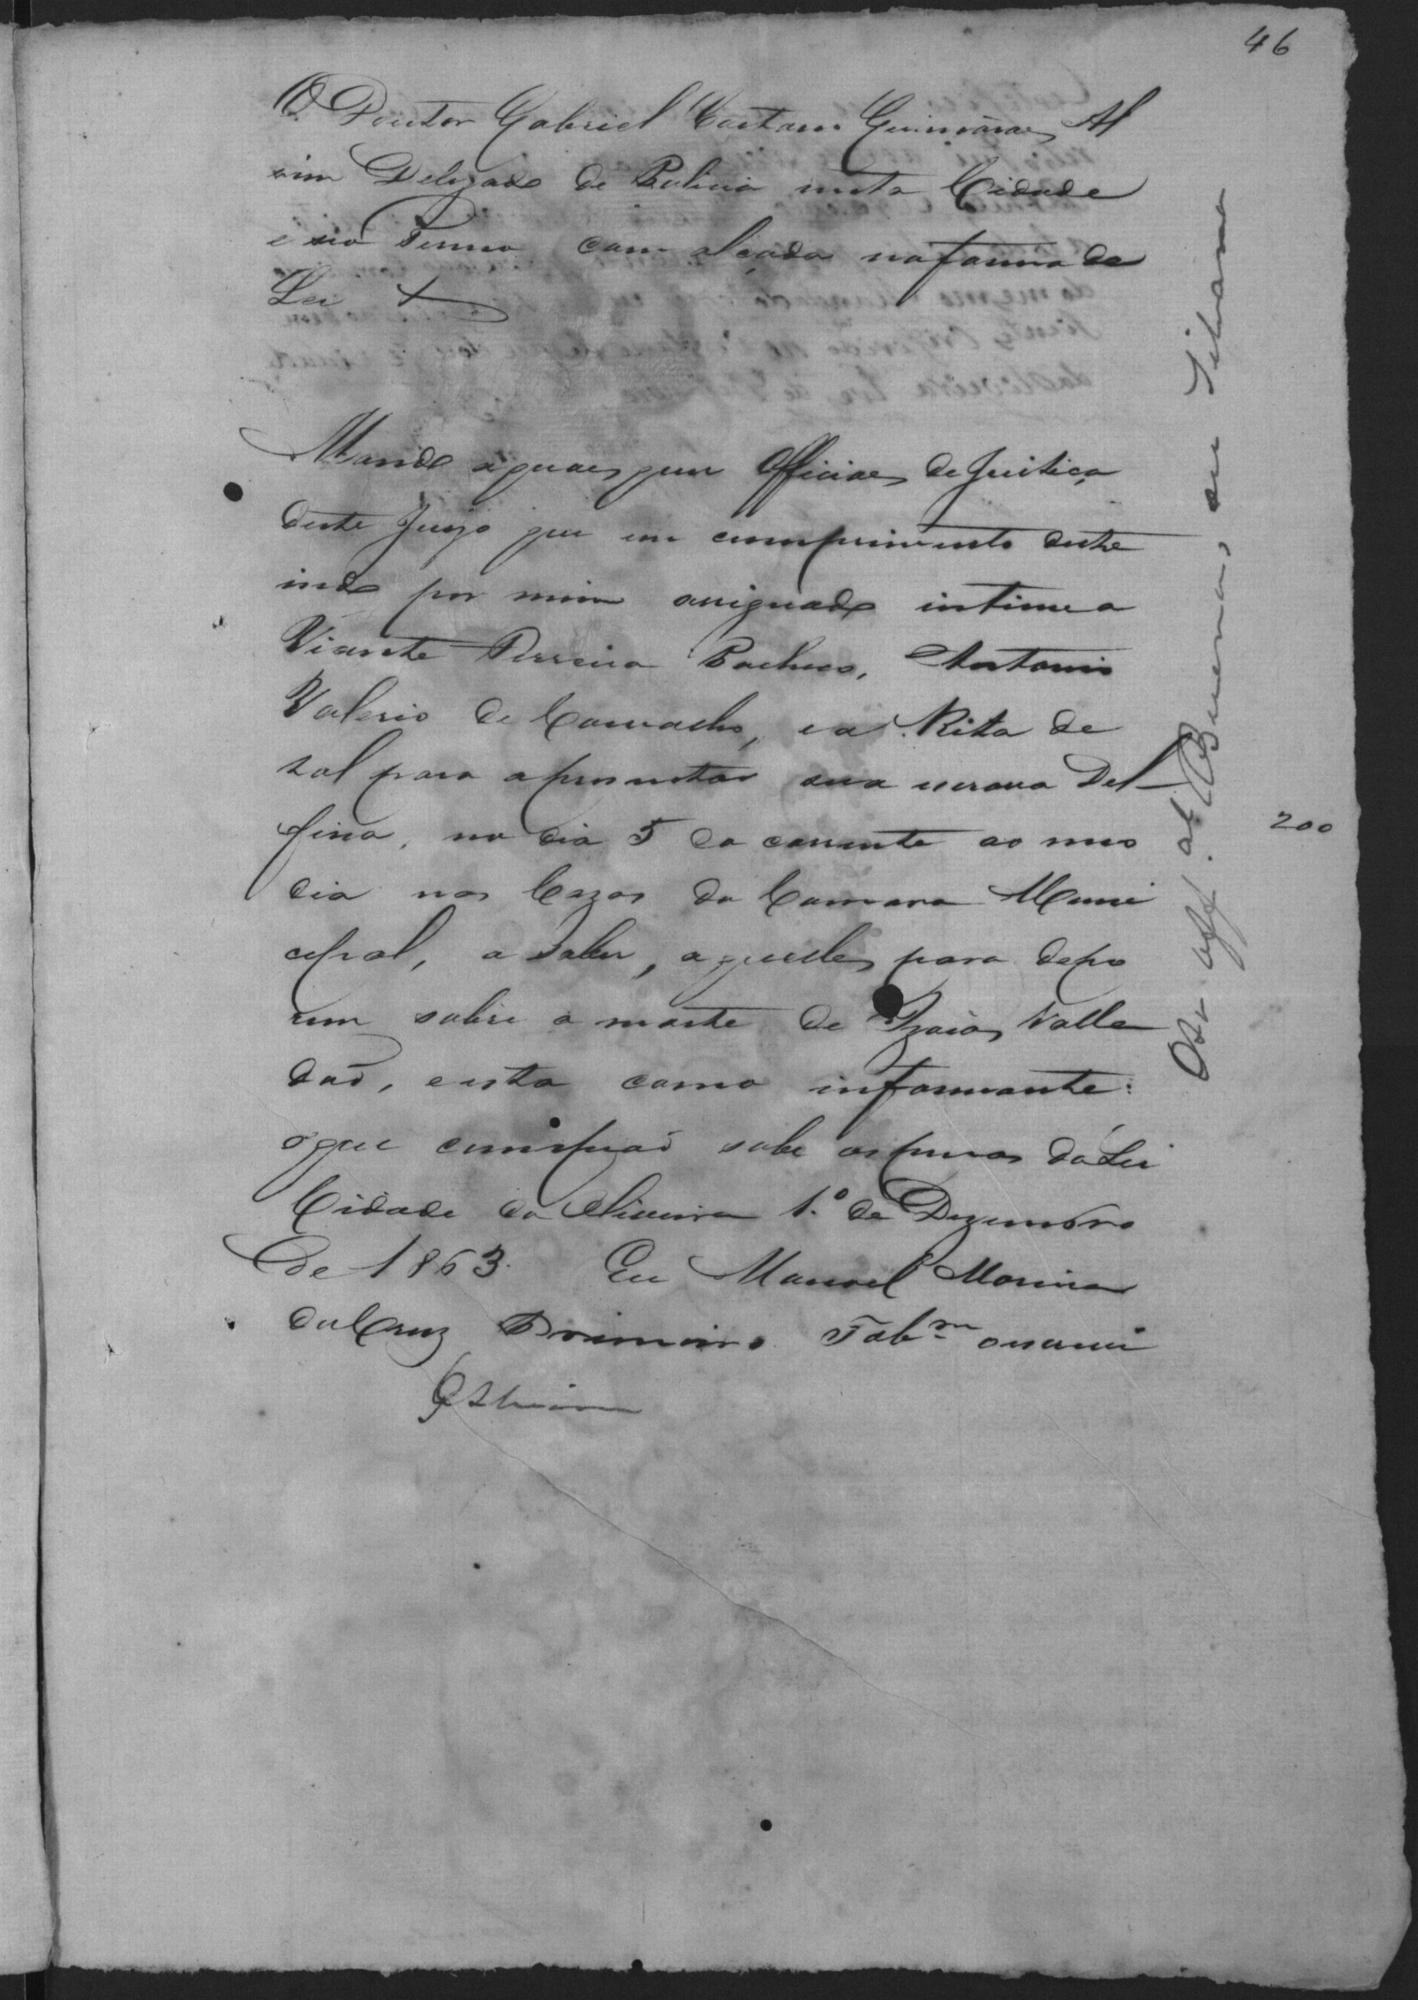 46
O Doutor Gabriel Caetano Guimarães Al
vim Delegado de Policia nesta Cidade
e seo Termo com alçada na forma da
Lei
Mando a quaesquer Officiaes de Justiça
deste Juizo que em cumprimento deste
indo por mim assignado intime a
Vicente Ferreira Pacheco, Antonio
Valerio de Carvalho, e a Rita de
tal para apresentar sua escrava Del
fina, no dia 5 do corrente ao meio
dia nas Cazas da Camara Muni
cipal, a saber, aquelles para depo
rem sobre a morte de Izaias Valla
daõ, e esta como informante:
o que cumpraõ sob as penas da Lei
Cidade da Oliveira 1.º de Dezembro
de 1863. Eu Manoel
da Cruz Primeiro Tab.m escrevi
GAlvim
200